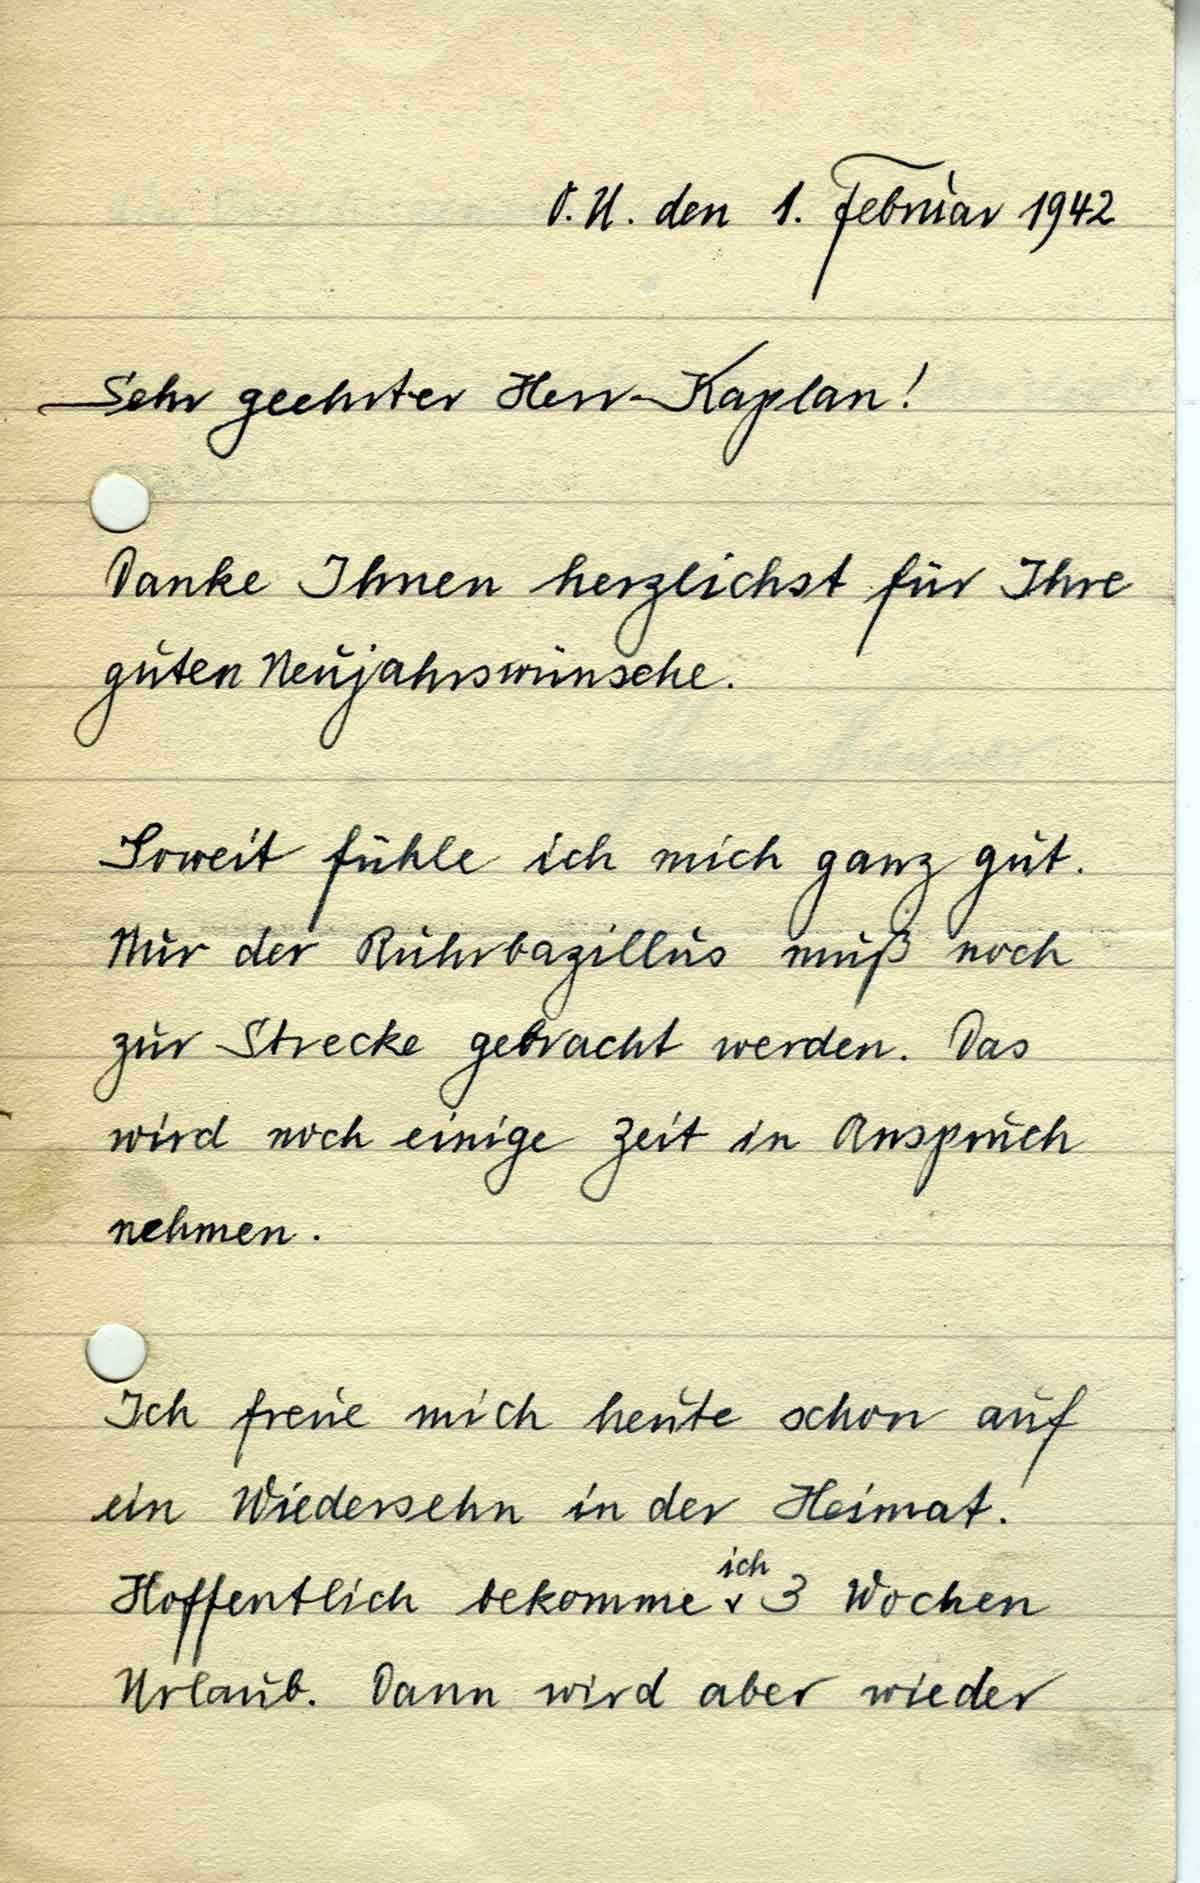 O.U. den 1. Februar 1942
Sehr geehrter Herr Kaplan!
Danke Ihnen herzlichst für Ihre
guten Neujahrswünsche.
Soweit fühle ich mich ganz gut.
Nur der Ruhrbazillus muß noch
zur Strecke gebracht werden. Das
wird noch einige Zeit in Anspruch
nehmen.
Ich freue mich heute schon auf
ein Wiedersehn in der Heimat.
Hoffentlich bekomme ich 3 Wochen
Urlaub. Dann wird aber wieder